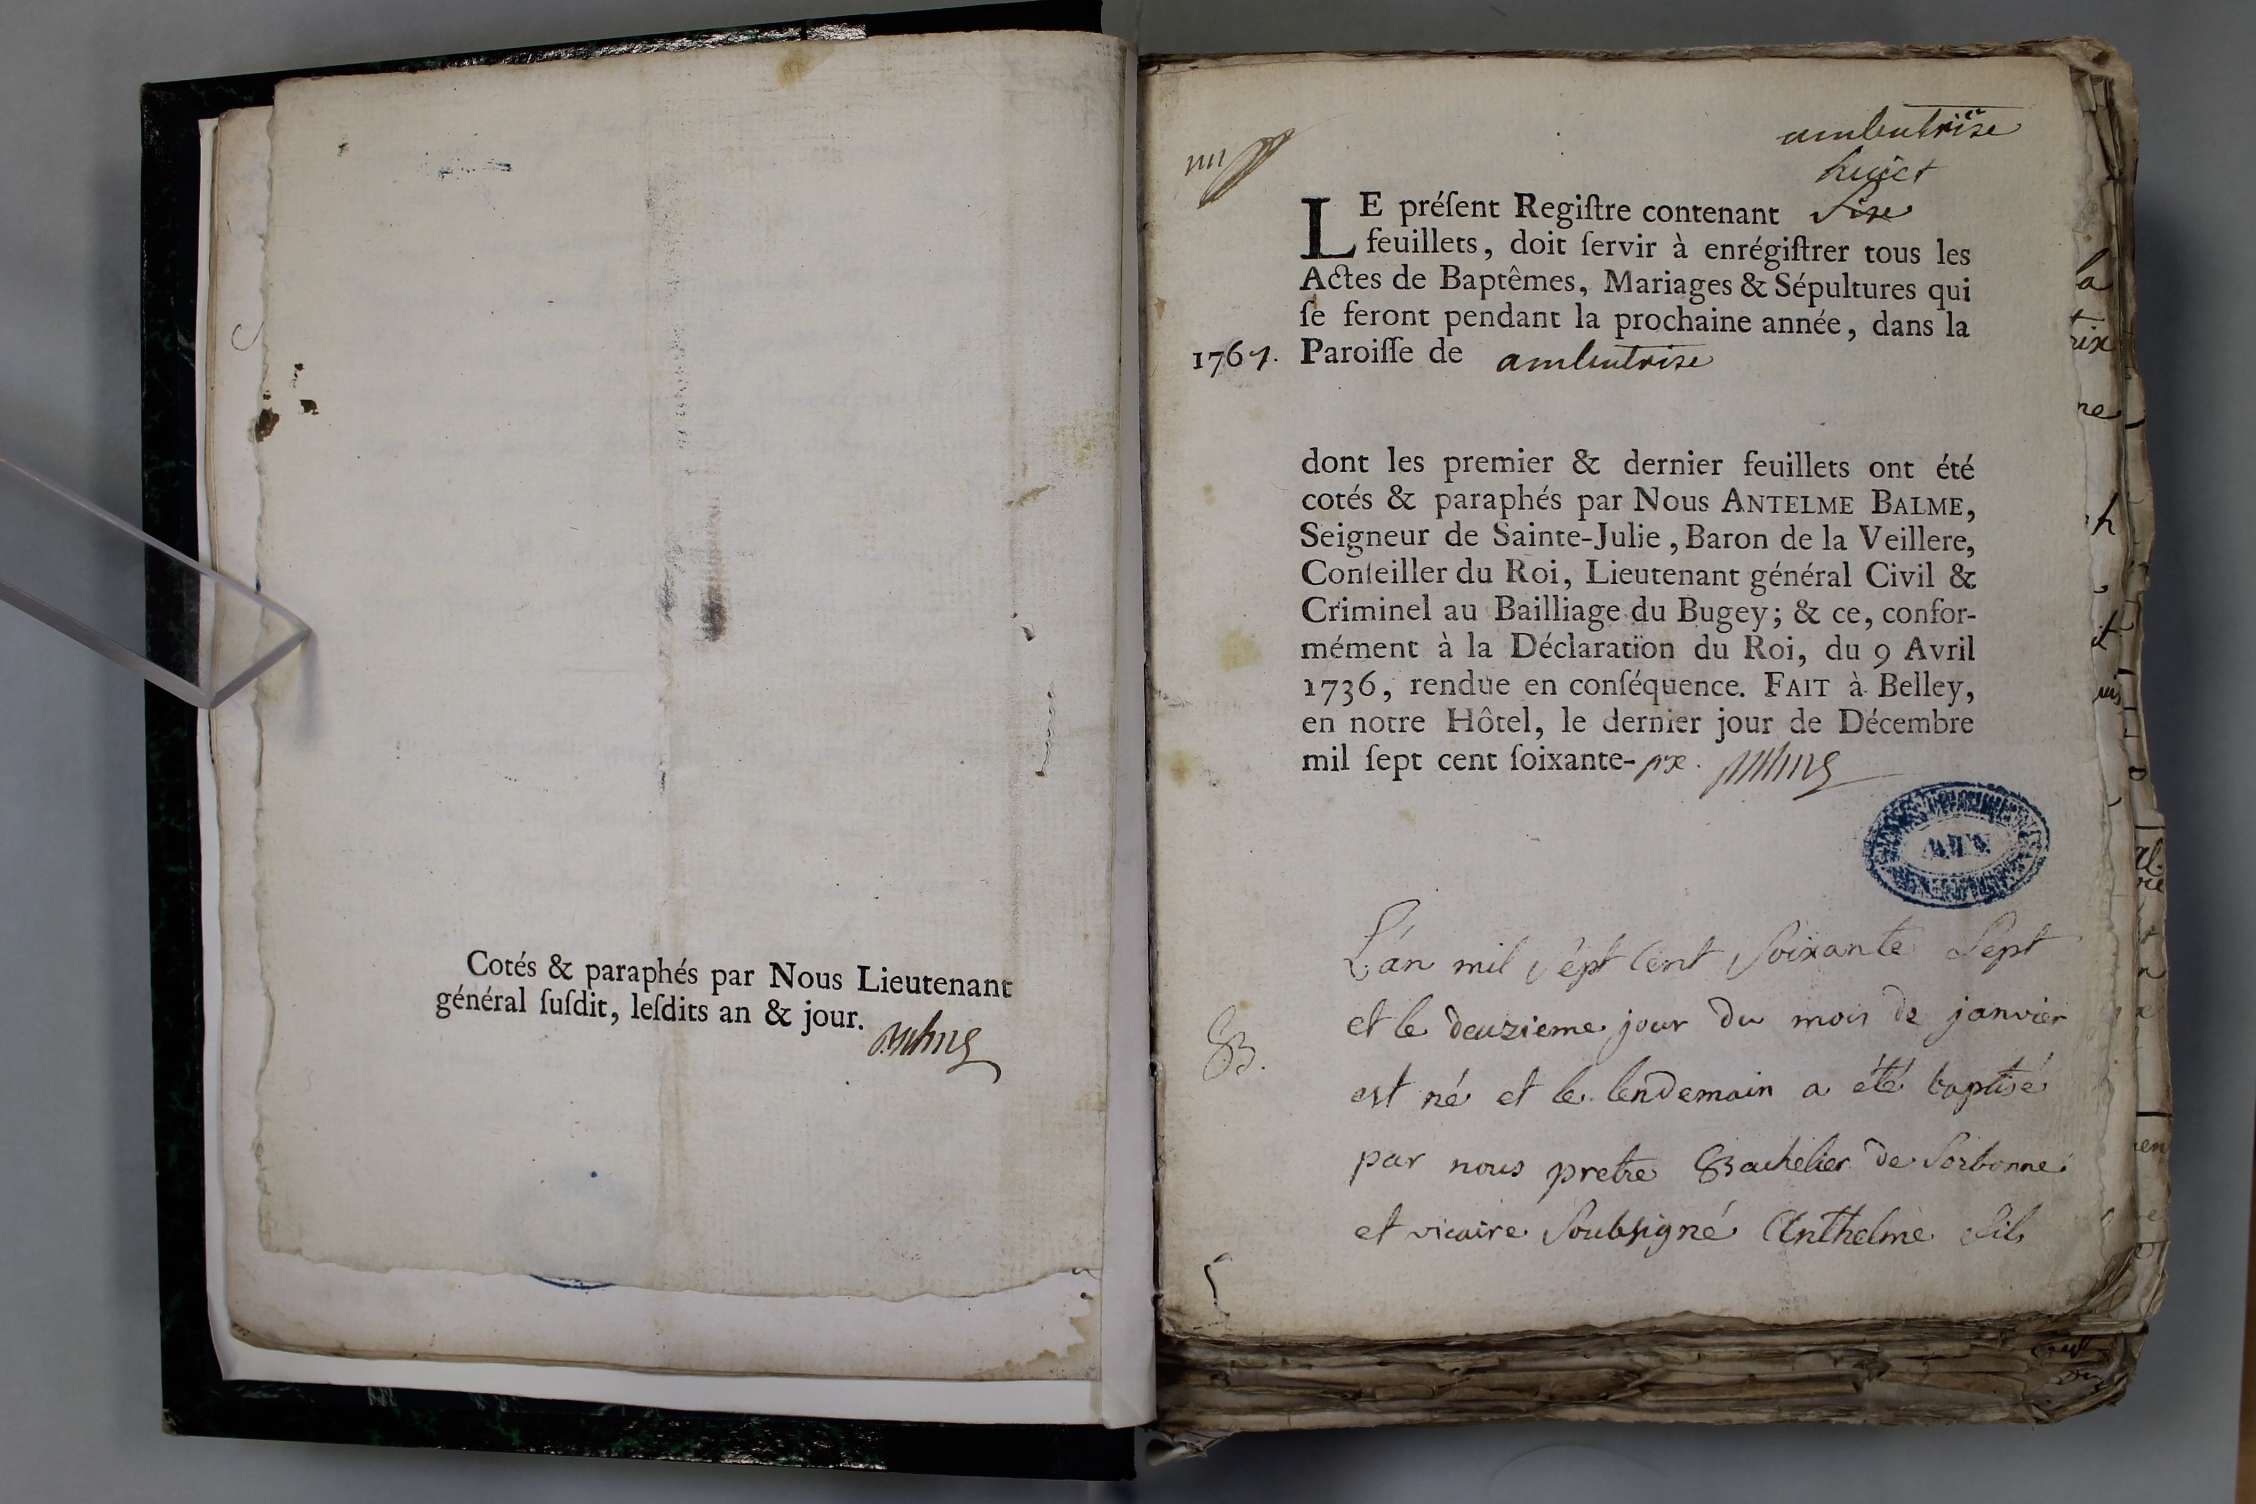 Cotés & paraphés par Nous Lieutenant
général ſuſdit, leſdits an & jour.
ambutrise
huict
LE préſent Regiſtre contenant Sixe
feuillets, doit ſervir à enrégiſtrer tous les
Actes de Baptêmes, Mariages & Sépultures qui
ſe feront pendant la prochaine année, dans la
1767. Paroiſſe de ambutrise
dont les premier & dernier feuillets ont été
cotés & paraphés par Nous ANTELME BALME,
Seigneur de Sainte-Julie, Baron de la Veillere,
Conſeiller du Roi, Lieutenant général Civil &
Criminel au Bailliage du Bugey; & ce, confor-
mément à la Déclaration du Roi, du 9 Avril
1736, rendue en conſéquence. FAIT à Belley,
en notre Hôtel, le dernier jour de Décembre
mil ſept cent ſoixante-six.
AIN
L'an mil sept Cent Soixante Sept
et le deuzieme jour du mois de janvier
B. est né et le lendemain a été baptisé
par nous pretre Bachelier de Sorbonne
et vicaire Soubsigné Anthelme fils